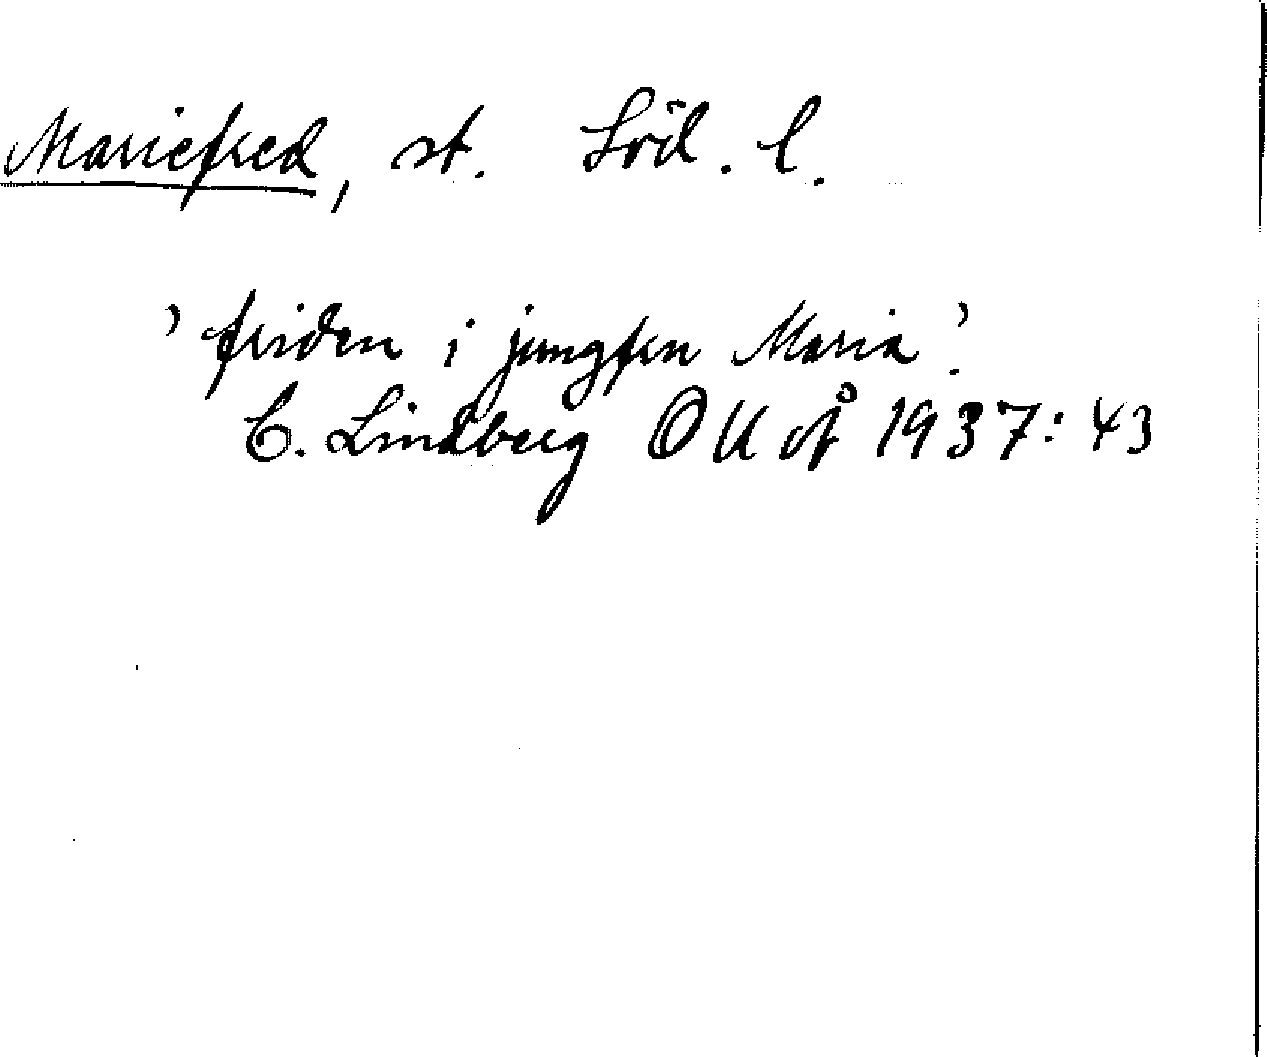 Mariefred, st. Söd. l.
'friden i jungfru Maria'.
C. Lindberg OUoÅ 1937: 43